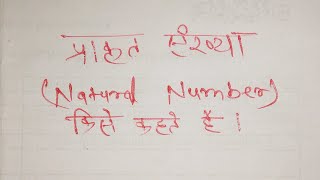 प्राकृत संख्या
(Natural Number)
किसे कहते है।